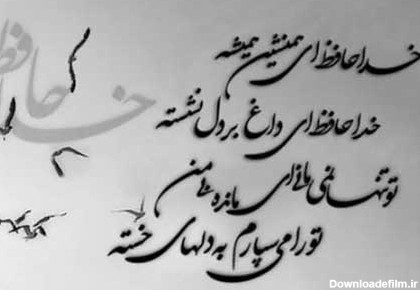 خداحافظ
خداحافظ ای همنشین همیشه
خداحافظ ای داغ بر دل نشسته
تو تنها نمی مانی ای مانده بی من
تو را می سپارم به دلهای خسته
Downloadefilm.ir